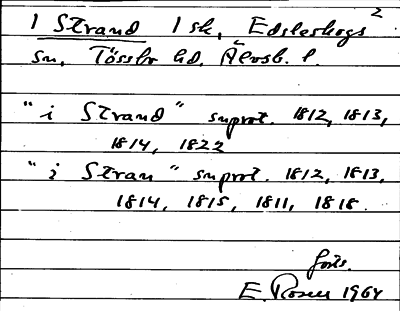 1 Strand 1 sk, Edsleskogs 2
sn, Tössbo hd. Älvsb. l.
"i Strand" snprot. 1812, 1813,
1814, 1822
"i Stran" snprot. 1812, 1813,
1814, 1815, 1811, 1818.
forts.
E. Rosen 1964